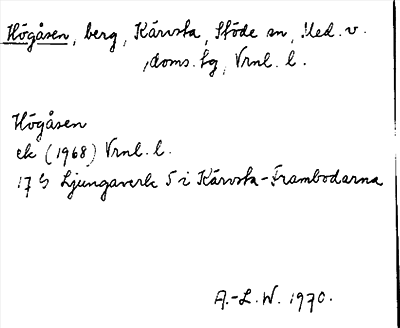 Högåsen, berg, Kärvsta, Stöde sn, Med. v.
doms. tg, Vrnl. l.
Högåsen
ek (1968) Vrnl. l.
17 G Ljungaverk 5 i Kärvsta-Frambodarna
A.-L. W. 1970.